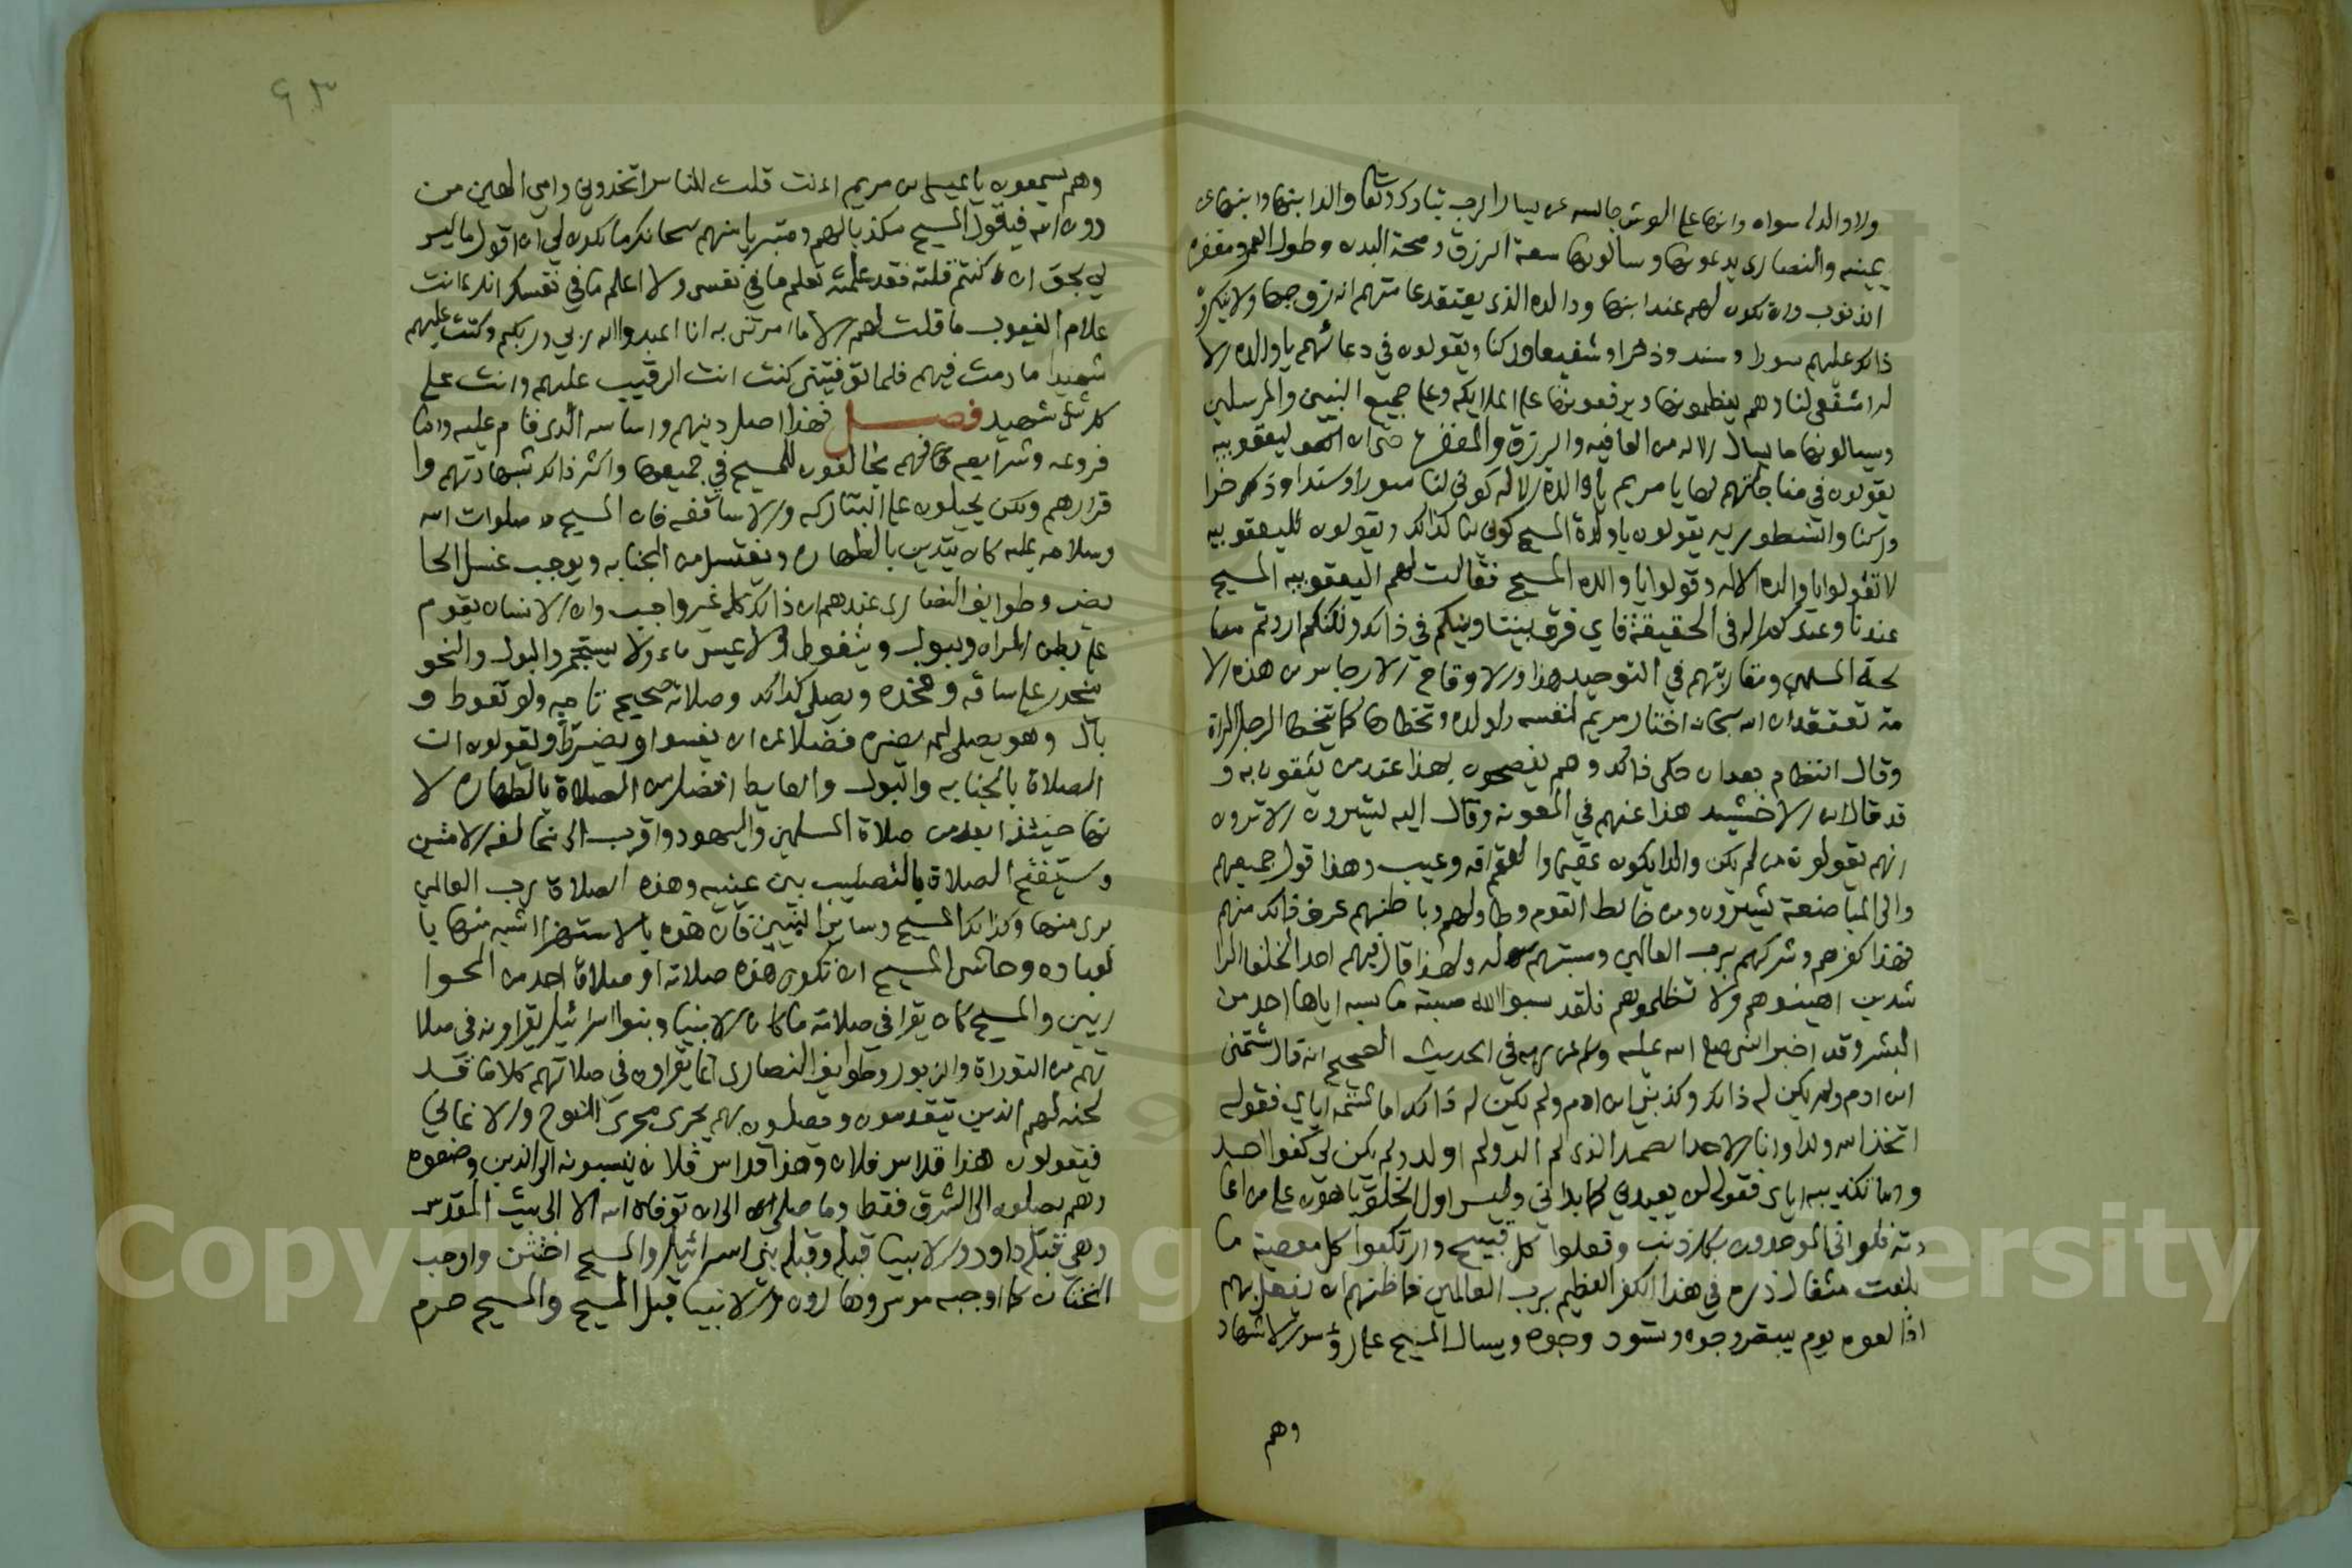 ولا والد له سواه وابنها على العرش جالسه عن يسار الرب تبارك وتعالى والد ابنها وابنها عن
يمينه والنصارى يدعونها ويسالونها سعة الرزق وصحة البدن وطول العمر ومغفرة
الذنوب وان تكون لهم عند ابنها ووالده الذي يعتقد عامتهم انه زوجها ولا ينكرون
ذلك عليهم سورا وسندا وذخرا وشفيعا وركنا ويقولون في دعائهم يا والدة الا
له اشفعي لنا وهم يعظمونها ويرفعونها على الملايكه وعلى جميع النبيين والمرسلين
ويسالونها ما يسال الاله من العافيه والرزق والمغفرة حتى ان اليعقوبيه
يقولون في مناجاتهم لها يا مريم يا والدة الاله كوني لنا سورا وسندا وذخرا
وركنا والنسطوريه يقولون يا والدة المسيح كوني لنا كذلك ويقولون لليعقوبيه
لا تقولوا يا والدة الاله وقولوا يا والدة المسيح فقالت لهم اليعقوبيه المسيح
عندنا وعندكم اله في الحقيقة فاي فرق بيننا وبينكم في ذلك ولكنكم اردتم مصا
لحة المسلمين ومقاربتهم في التوحيد هذا والاوقاح الارجاس من هذه الا
مة تعتقد ان الله سبحانه اختار مريم لنفسه ولولده وتخطاها كما يتخطا الرجل المراة
وقال النظام بعد ان حكى ذلك وهم يفصحون بهذا عند من يثقون به و
قد قال ابن الاخشيد هذا عنهم في المعونة وقال اليه يشيرون الا ترون
انهم يقولون من لم يكن والدا يكون عقيما والعقم افه وعيب وهذا قول جميعهم
والى المباضعة يشيرون ومن خالط القوم وطاولهم وباطنهم عرف ذلك منهم
فهذا كفرهم وشركهم برب العالمين ومسبتهم له ولهذا قال فيهم احد الخلفا الرا
شدين اهينوهم ولا تظلموهم فلقد سبوا الله مسبة ما سبه اياها احد من
البشر وقد اخبر النبي صلى الله عليه وسلم عن ربه في الحديث الصحيح انه قال شتمني
ابن ادم ولم يكن له ذلك وكذبني ابن ادم ولم يكن له ذلك اما شتمه اياي فقوله
اتخذ الله ولدا وانا الاحد الصمد الذي لم الد ولم اولد ولم يكن لي كفوا احد
واما تكذيبه اياي فقوله لن يعيدني كما بداني وليس اول الخلق باهون علي من اعا
دته فلو اتى الموحدون بكل ذنب وفعلوا كل قبيح وارتكبوا كل معصية ما
بلغت مثقال ذرة في هذا الكفر العظيم برب العالمين فما ظنهم ان يفعل بهم
اذا لقوه يوم يبيض وجوه وتسود وجوه ويسال المسيح على رؤس الاشهاد
وهم
وهم يسمعون يا عيسى بن مريم اانت قلت للناس اتخذوني وامي الهين من
دون الله فيقول المسيح مكذبا لهم ومتبريا منهم سبحانك ما يكون لي ان اقول ما ليس
لي بحق ان كنت قلته فقد علمته تعلم ما في نفسي ولا اعلم ما في نفسك انك انت
علام الغيوب ما قلت لهم الا ما امرتني به ان اعبدوا الله ربي وربكم وكنت عليهم
شهيدا ما دمت فيهم فلما توفيتني كنت انت الرقيب عليهم وانت على
كل شي شهيد فصل فهذا اصل دينهم واساسه الذي قام عليه واما
فروعه وشرايعه فانهم يخالفون للمسيح في جميعها واكثر ذلك بشهادتهم وا
قرارهم ولكن يحيلون على البتاركه والاساقفه فان المسيح صلوات الله
وسلامه عليه كان يتدين بالطهاره ويغتسل من الجنابه ويوجب غسل الحا
يض وطوايف النصارى عندهم ان ذلك كله غير واجب وان الانسان يقوم
على بطن المراه ويبول ويتغوط ولا يمس ماء ولا يستجمر والبول والنجو
ينحدر على ساقه وفخذه ويصلي كذلك وصلاته صحيحة تامه ولو تغوط و
بال وهو يصلي لم يضره فضلا عن ان يفسو او يضرط ويقولون ان
الصلاة بالجنابه والبول والغايط افضل من الصلاة بالطهاره لا
نها حينئذ ابعد من صلاة المسلمين واليهود واقرب الى مخالفه الامتين
ويستفتح الصلاة بالتصليب بين عينيه وهذه الصلاة رب العالمين
برى منها وكذلك المسيح وساير النبيين فان هذه بالاستهزا اشبه منها با
لعباده وحاشى المسيح ان تكون هذه صلاته او صلاة احد من الحوا
ريين والمسيح كان يقرا في صلاته ما كان الانبيا وبنوا اسرائيل يقراونه في صلا
تهم من التوراة والزبور وطوايف النصارى انما يقراون في صلاتهم كلاما قد
لحنه لهم الذين يتقدمون ويصلون بهم يجري مجرى النوح والاغاني
فيقولون هذا قداس فلان وهذا قداس فلان ينسبونه الى الذين وضعوه
وهم يصلون الى الشرق فقط وما صلى الى ان توفاه الله الا الى بيت المقدس
وهي قبلة داود والانبيا قبله وقبلة بني اسرائيل والمسيح اختتن واوجب
الختان كما اوجبه موسى وهارون والانبيا قبل المسيح والمسيح حرم
Copyright © King Saud University